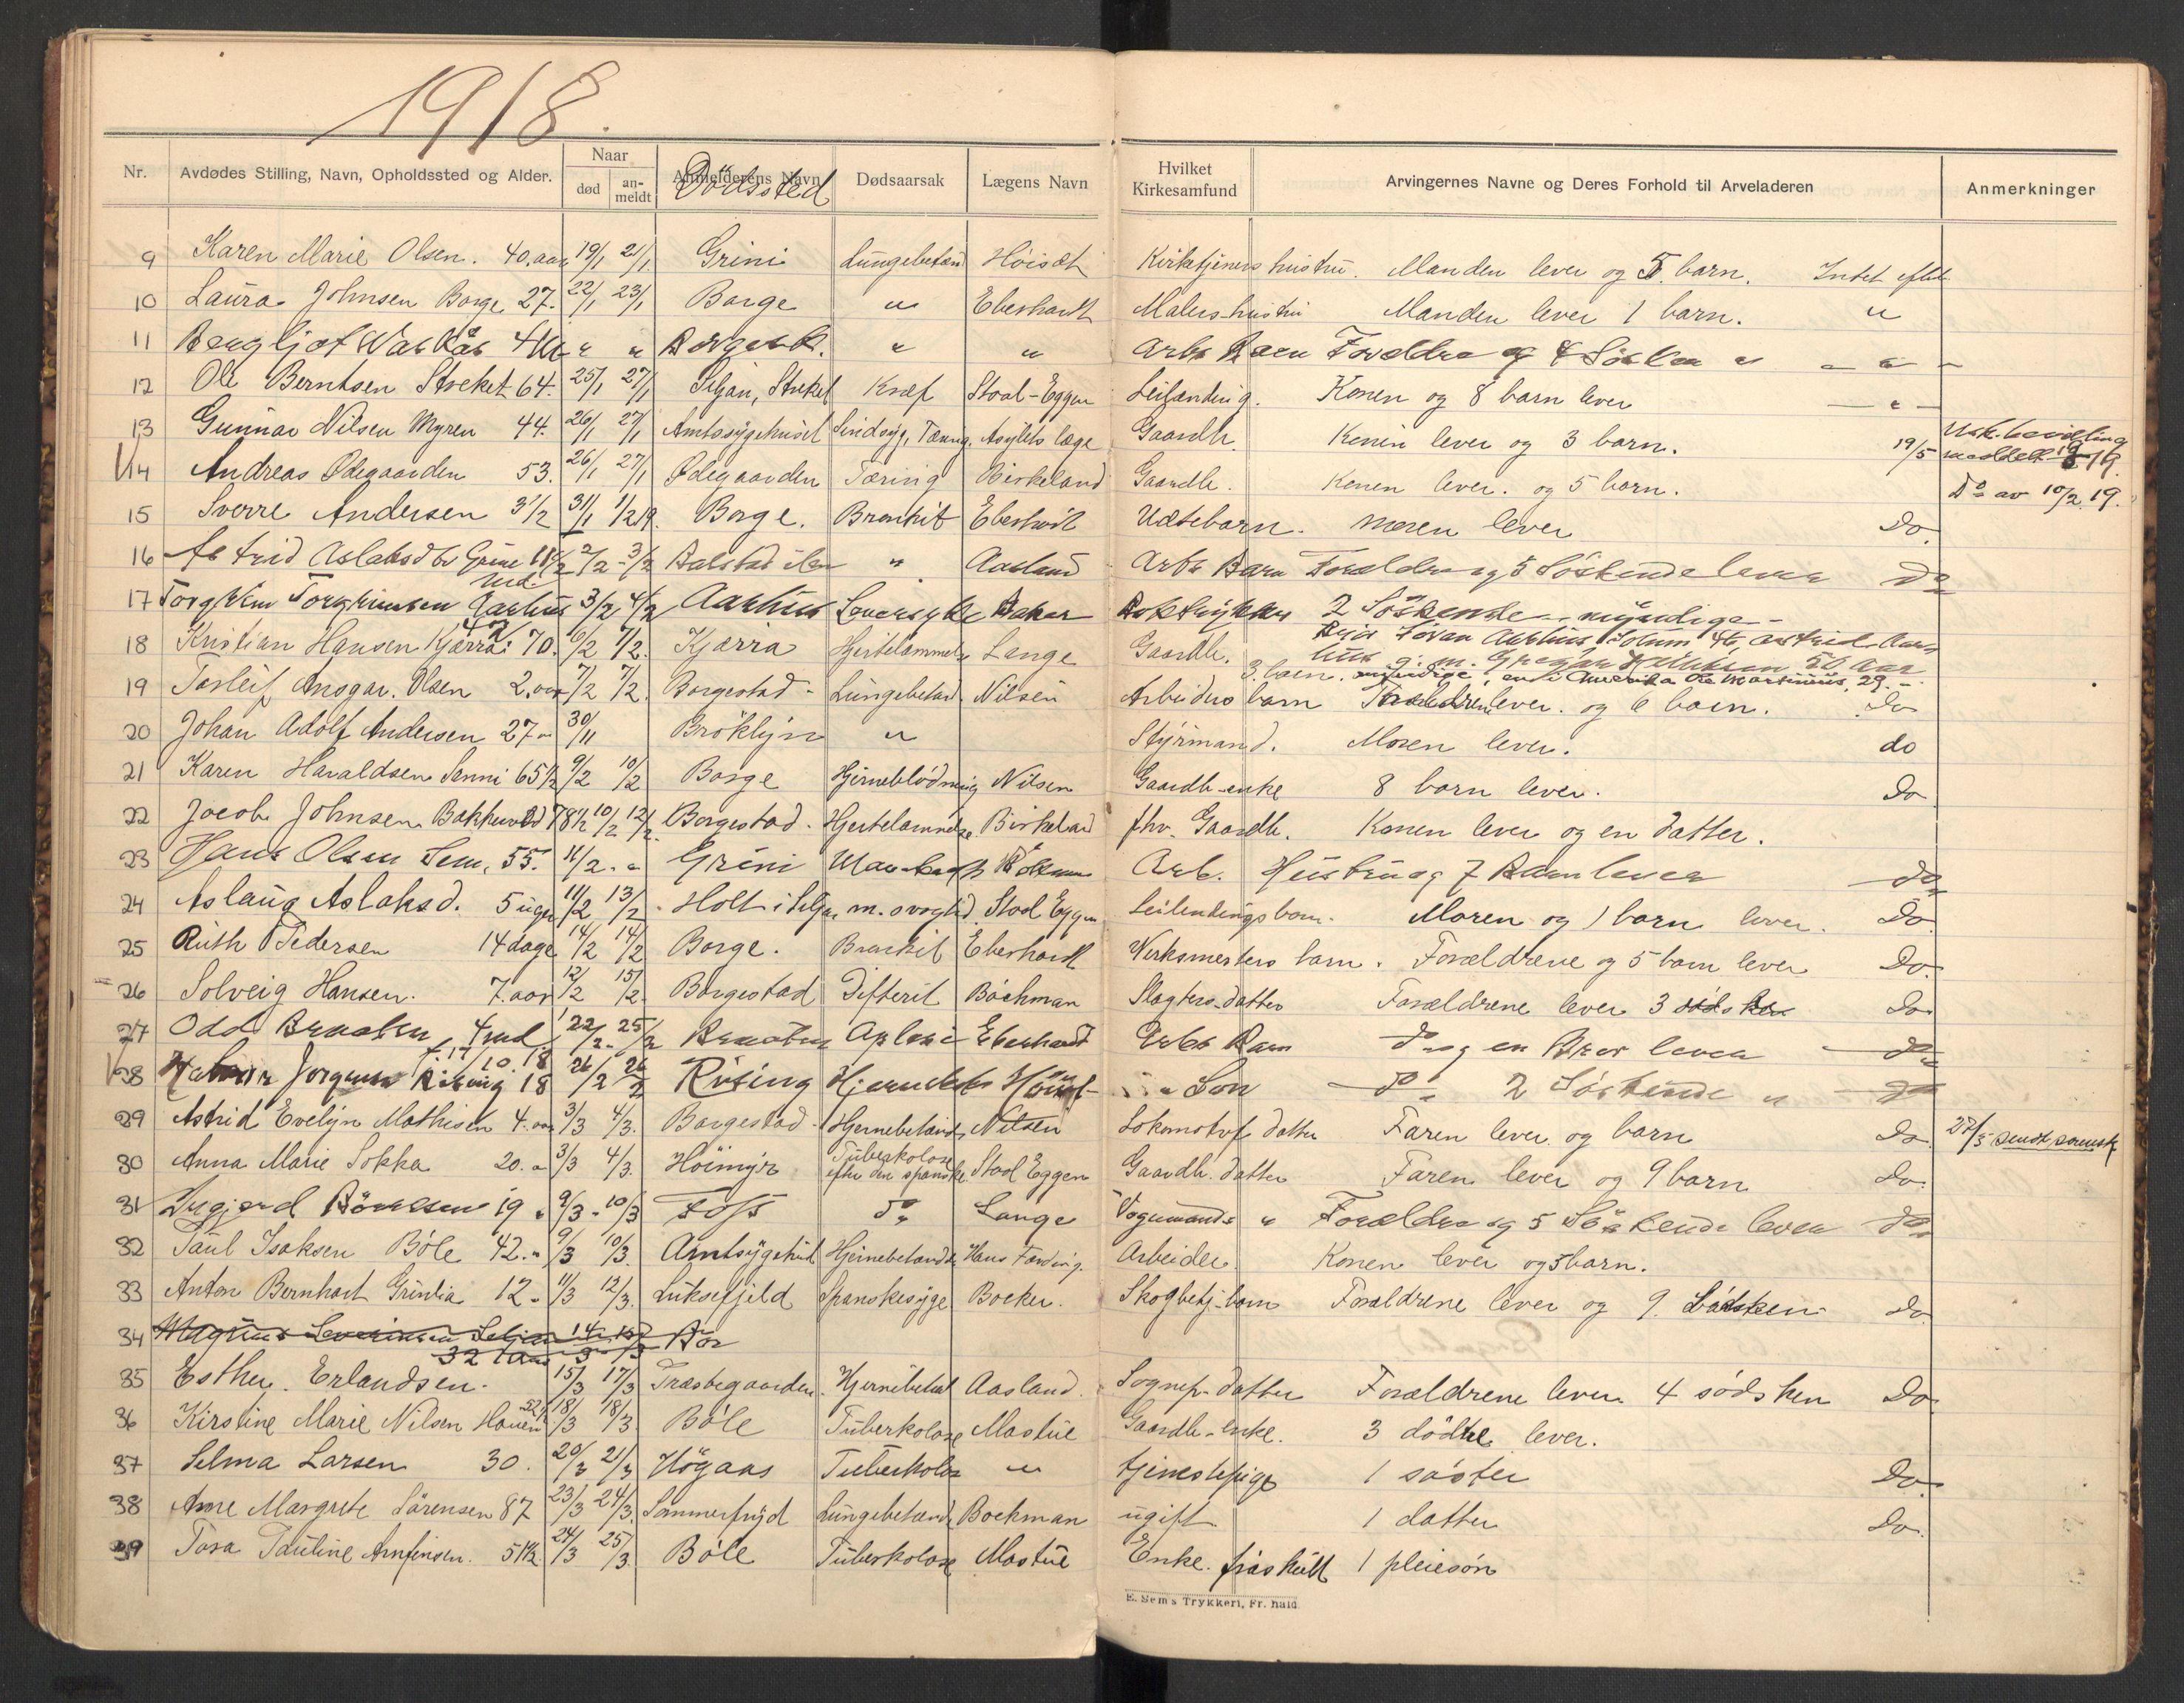 1918.
Nr. Avdødes Stilling, Navn, Opholdssted og Alder. Naar død an-meldt Anmelderens Navn Dödssted Dødsaarsak Lægens Navn Hvilket Kirkesamfund Arvingernes Navne og Deres Forhold til Arveladeren Anmerkninger
9 Karen Marie Olsen. 40. aar 19/1 21/1 Grini Lungebetænd Höisæt Kirketjeners hustru. Manden lever og 5. barn. Intet efterl.
10 Laura Johnsen Borge 27. 22/1 23/1 Borge " Eberhardt Malers hustru Manden lever 1 barn. "
11 Bergljot " " " " Arb. Barn Forældre og 4 Søsken " — " —
12 Ole Berntsen Streket 64. 25/1 27/1 Siljan, Streket Kræf Stoal-Eggen Leilænding. Konen og 8 barn lever — " —
13 Gunnar Nilsen Myren 44. 26/1 27/1 Amtssygehuset Sindsyg, Tæring. Asylets læge Gaardb. Konen lever og 3 barn. 19/5 Usk. bevilling
14 Andreas Ødegaarden 53. 26/1 27/1 Ødegaarden Tæring Birkeland Gaardb. Konen lever. og 5 barn. Do av 10/2 19.
15 Sverre Andersen 3 1/2 31/1 1/2 19. Borge. Bronkit Eberhardt Udtebarn. Moren lever Do.
16 Astrid Aslaksdtr Grini 2/2 3/2 " Aasland Arbs Barn Forældre og 5 Söskende lever do
17 Torgrim Torgrimsen Aarhus 3/2 4/2 Aarhus Leversyke 2 Söskende myndige -
18 Kristian Hansen Kjærra. 70. 6/2 7/2. Kjærra Hjertelammelse Lange Gaardb. 3. barn.
19 Torleif Ansgar. Olsen 2. aar 7/2 7/2. Borgestad - Lungebetænd. Nilsen Arbeiders barn Forældrene lever. og 6 barn. Do
20 Johan Adolf Andersen 27 " 30/11 Bröklyn " Styrmand. Moren lever. do
21 Karen Haraldsen Sanni 65 1/2 9/2 10/2 Borge Hjerneblödning Nilsen Gaardb-enke 8 barn lever. Do
22 Jacob Johnsen Bakkevold 78 1/2 10/2 12/2 Borgestad. Hjertelammelse Birkeland fhv. Gaardb. Konen lever og en datter.
23 Hans Olsen Sem, 55. 11/2. " Grini Arb. Hustru og 7 Barn lever do
24 Aslaug Aslaksd. 5 uger 11/2 13/2 Holt i Siljan m. svaghed. Stoal Eggen Leilendings barn. Moren og 1 barn lever. Do.
25 Ruth Pedersen 14 dage 14/2 14/2 Borge. Bronkit Eberhardt Verksmesters barn. Forældrene og 5 barn lever Do.
26 Solveig Hansen. 7. aar 12/2 15/2. Borgestad Difterit Bockman Slagters datter Forældrene lever 3 södsken Do
27 Odd 4 md 22/2 25/2 Eberhardt Arbs Barn do og en Bror lever do
f. 17/10. 18
28 Jorgensen Rising 18 26/2 26/2 Rising " Sön do 2 Söskende " do
29 Astrid Evelyn Mathisen 4. aar 3/3 4/3. Borgestad - Hjernebetænd. Nilsen Lokomotvf datter Faren lever og barn Do. 27/5 sendt
30 Anna Marie Sokka 20. " 3/3 4/3. Höimyr Tuberkolose efter den spanske Stoal Eggen Gaardb. datter Faren lever og 9 barn do.
31 Ingjerd 19 " 9/3 10/3 Foss do Lange Vognmands " Forældre og 5 Söskende lever do
32 Paul Isaksen Böle 42. " 9/3 10/3. Amtsygehus Hjernebetændelse Arbeider. Konen lever og 5 barn.
33 Anton Bernhart Grinlia 12 " 11/3 12/3. Luksefjeld Spanskesyge Boeker. Skogbetj. barn Forældrene lever og 9. Södsken Do
34 Magnus Severinsen Seljan 14/3 15/3 Bör
32 1/2 aar
35 Esther. Erlandsen. 15/3 17/3 Præstegaarden. Hjernebetæt Aasland. Sognep. datter Forældrene lever 4 södsken Do
36 Kirstine Marie Nilsen Hauen 52 1/2 18/3 18/3. Böle Tuberkolose Mastue Gaardb-enke. 3 dödtre lever.
37 Selma Larsen 30. 20/3 21/3 Högaas Tuberkolos " tjenestepige 1 söster Do
38 Anne Margrete Sörensen 87 23/3 24/3. Sommerfryd Lungebetænd Bockman ugift 1 datter Do.
39 Tora Pauline Arnfinsen. 51 1/2. 24/3 25/3. Böle Tuberkolose Mastue Enke. fraskilt 1 pleiesön
E. Sem's Trykkeri, Fr. hald